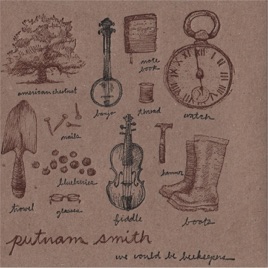 american chestnut
banjo
note
book
thread
watch
nails
blueberries
hammer
trowel
glasses
fiddle
boots
putnam smith
we could be beekeepers